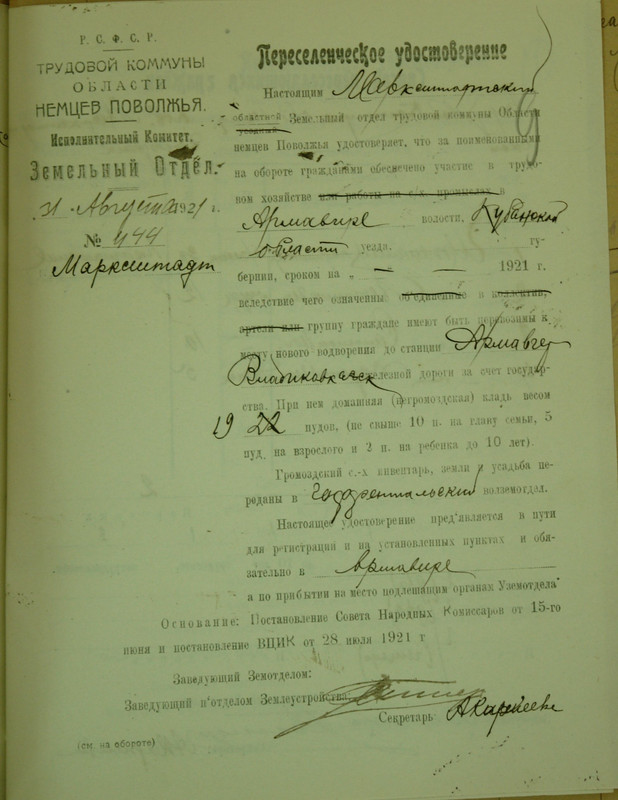 Р. С. Ф. С. Р.
ТРУДОВОЙ КОММУНЫ
ОБЛАСТИ
НЕМЦЕВ ПОВОЛЖЬЯ.
Исполнительный Комитет.
Земельный Отдел.
31 Августа 1921 г.
№ 444
Марксштадт
Переселенческое удостоверение
Настоящим Марксштадтский
областной Земельный отдел трудовой коммуны Области
немцев Поволжья удостоверяет, что за поименованными
на обороте гражданами обеспечено участие в трудо-
вом хозяйстве или работы на с/х промыслах в
Армавире волости, Кубанской
области уезда. гу-
бернии, сроком на „ — — 1921 г.
вследствие чего означенны об'единение в коллектив,
артели или группу граждане имеют быть перевозимы к
месту нового водворения до станции Армавир
Владикавказск железной дороги за счет государ-
ства. При нем домашняя (негромоздкая) кладь весом
19 22 пудов, (не свыше 10 п. на главу семьи, 5
пуд. на взрослого и 2 п. на ребенка до 10 лет).
Громоздкий с.-х инвентарь, земли и усадьба пе-
реданы в волземотдел.
Настоящее удостоверение пред'является в пути
для регистрации и на установленных пунктах и обя-
зательно в Армавире
а по прибытии на место подлещащим органах Уземотдела
Основание: Постановление Совета Народных Комиссаров от 15-го
июня и постановление ВЦИК от 28 июля 1921 г
Заведующий Земотделом:
Заведующий п'отделом Землеустройства:
Секретарь
(см. на обороте)